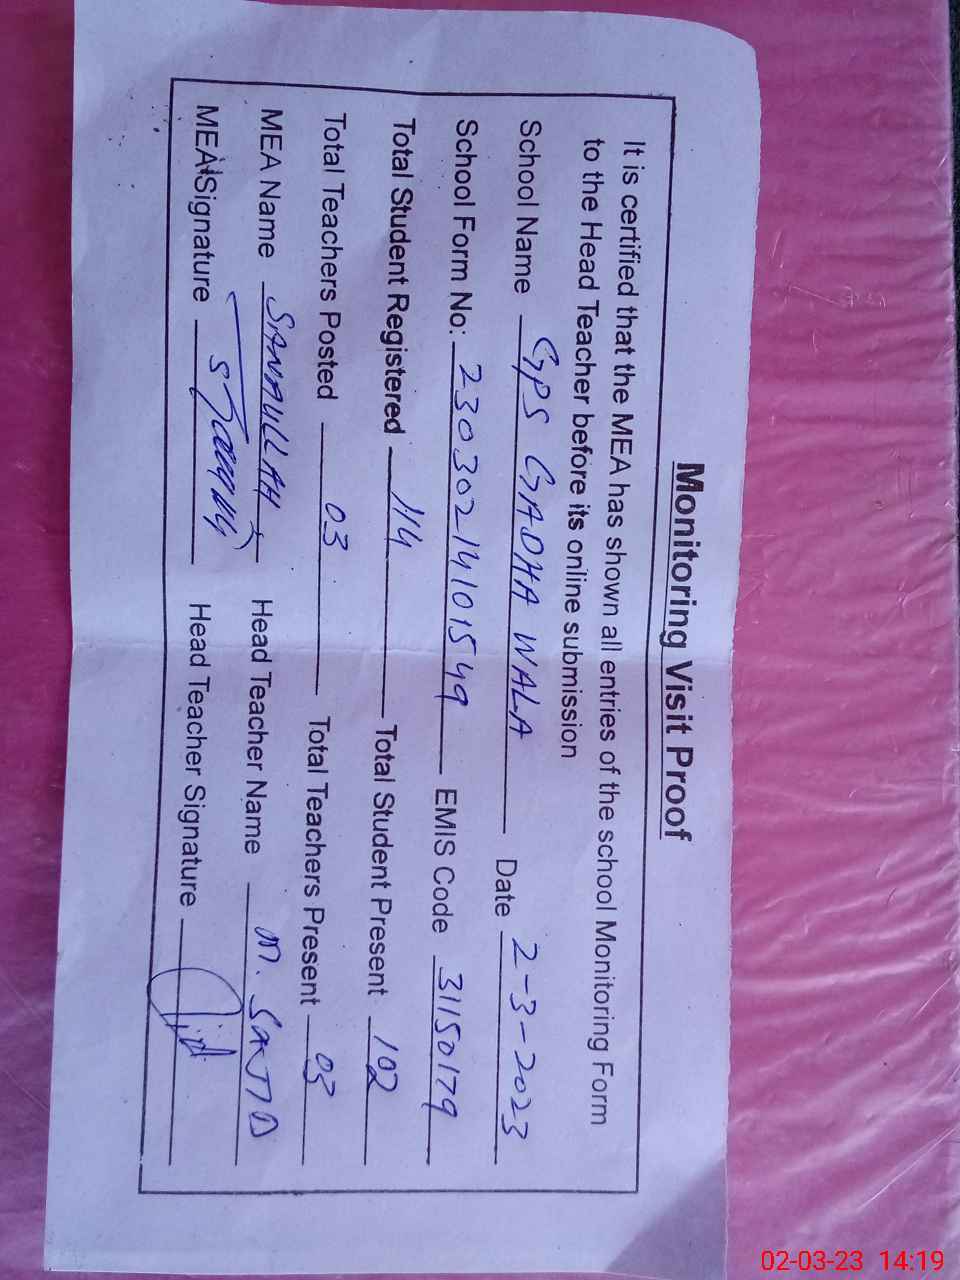 Monitoring Visit Proof
It is certified that the MEA has shown all entries of the school Monitoring Form
to the Head Teacher before its online submission
School Name GPS GADHA WALA Date 2-3-2023
School Form No: 23030214101549 EMIS Code 31150179
Total Student Registered 114 Total Student Present 102
Total Teachers Posted 03 Total Teachers Present 03
MEA Name SANAULLAH Head Teacher Name M. SAJJD
MEA Signature Head Teacher Signature
02-03-23 14:19